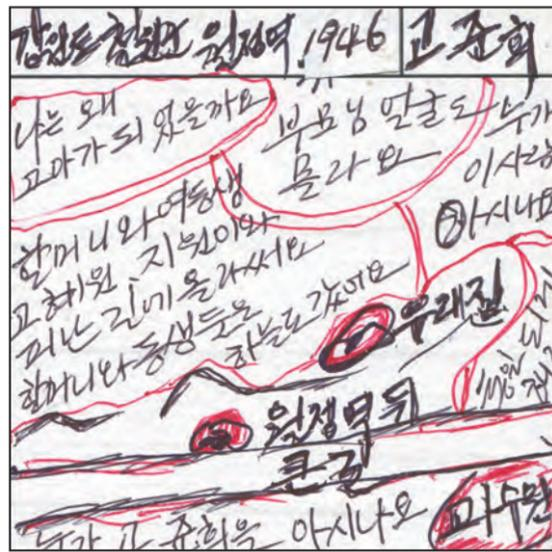 강원도 철원군 월정역 1946 고준희
나는 왜
고아가 되었을까요
부모님 얼굴도
몰라요
누가
이사람
아시나요
할머니와 여동생
고혜원, 지원이와
피난길에 올라써요
할머니와 동생들은
하늘로 갔어요
우리집
월정역 뒤
큰 길
과수원
누가 고준희을 아시나요